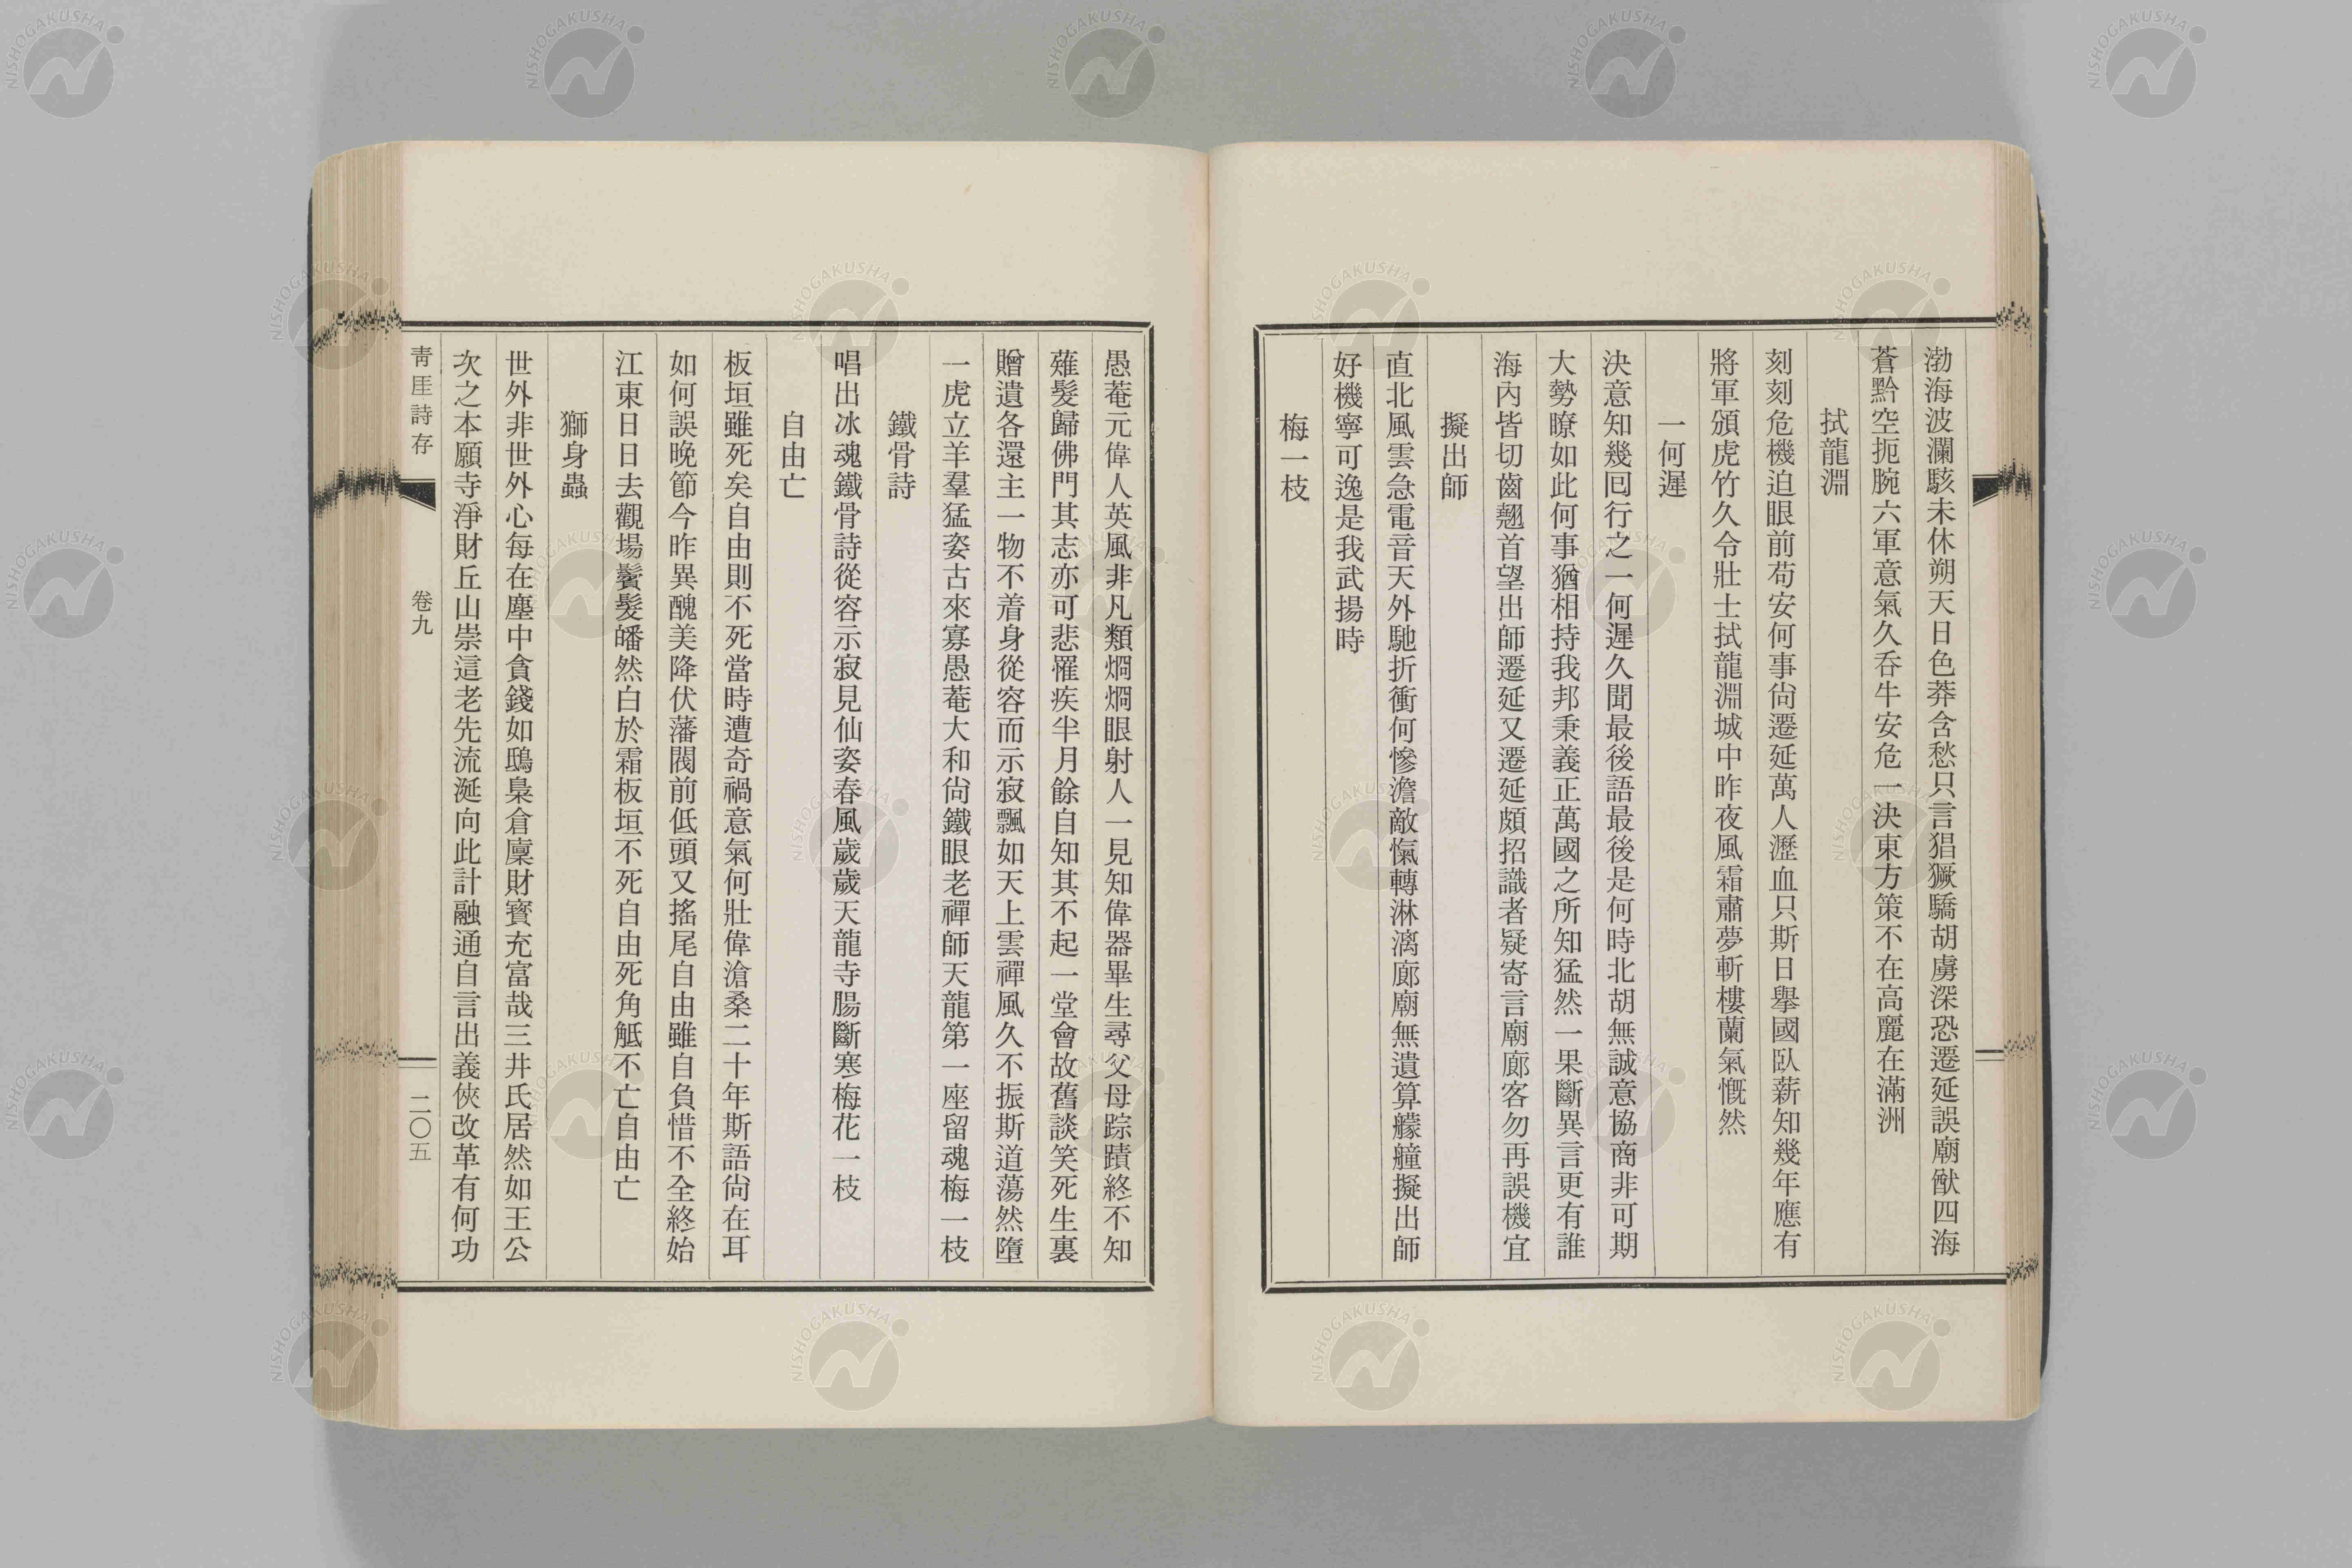 渤海波瀾駭未休朔天日色莽含愁只言猖獗驕胡虜深恐遷延誤廟猷四海
蒼黔空扼腕六軍意氣久吞牛安危一決東方策不在高麗在滿洲
拭龍淵
刻刻危機迫眼前苟安何事尙遷延萬人瀝血只斯日擧國臥薪知幾年應有
將軍頒虎竹久令壯士拭龍淵城中昨夜風霜肅夢斬樓蘭氣慨然
一何遲
決意知幾回行之一何遲久聞最後語最後是何時北胡無誠意協商非可期
大勢瞭如此何事猶相持我邦秉義正萬國之所知猛然一果斷異言更有誰
海內皆切齒翹首望出師遷延又遷延頗招識者疑寄言廟廊客勿再誤機宜
擬出師
直北風雲急電音天外馳折衝何慘澹敵愾轉淋漓廊廟無遺算艨艟擬出師
好機寧可逸是我武揚時
梅一枝
愚菴元偉人英風非凡類烱烱眼射人一見知偉器畢生尋父母踪蹟終不知
薙髮歸佛門其志亦可悲罹疾半月餘自知其不起一堂會故舊談笑死生裏
贈遺各還主一物不着身從容而示寂飄如天上雲禪風久不振斯道蕩然墮
一虎立羊羣猛姿古來寡愚菴大和尙鐵眼老禪師天龍第一座留魂梅一枝
鐵骨詩
唱出冰魂鐵骨詩從容示寂見仙姿春風歲歲天龍寺腸斷寒梅花一枝
自由亡
板垣雖死矣自由則不死當時遭奇禍意氣何壯偉滄桑二十年斯語尙在耳
如何誤晚節今昨異醜美降伏藩閥前低頭又搖尾自由雖自負惜不全終始
江東日日去觀場鬢髮皤然白於霜板垣不死自由死角觝不亡自由亡
獅身蟲
世外非世外心每在塵中貪錢如鴟梟倉廩財寶充富哉三井氏居然如王公
次之本願寺淨財丘山崇這老先流涎向此計融通自言出義俠改革有何功
靑厓詩存
卷九
二〇五
NISHOGAKUSHA